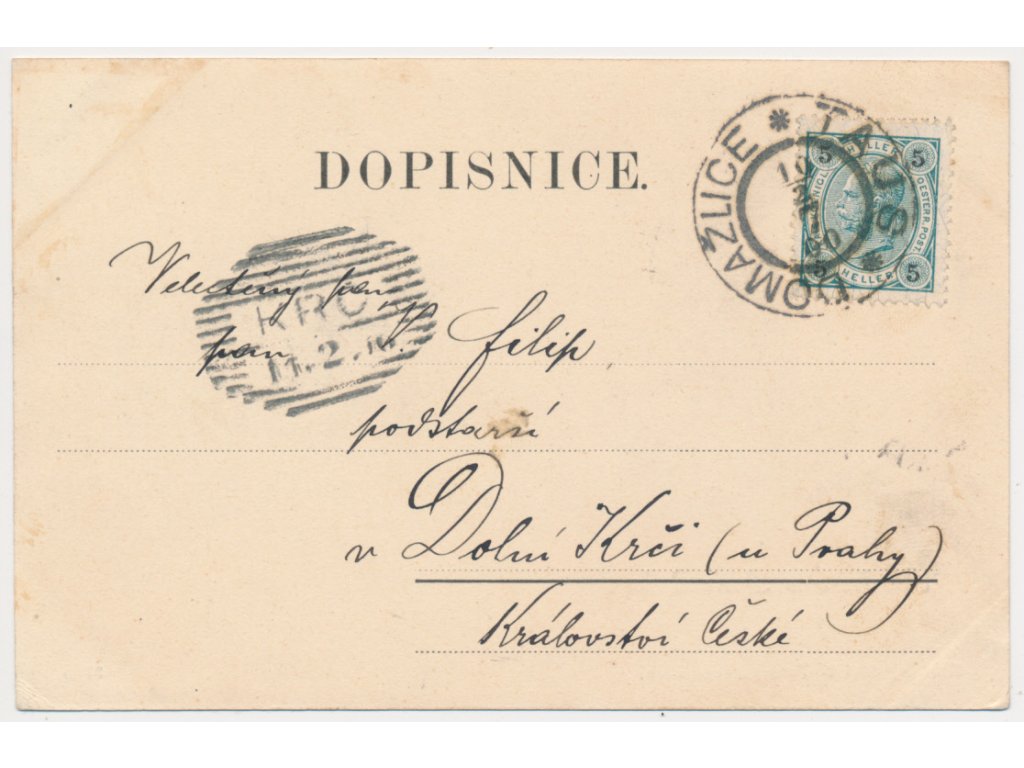 DOPISNICE.
DOMAŽLICE * TAUS *
10
5 HELLER 5
OESTERR. POST.
5 HELLER 5
Velectěný pan
KRČ
pan V. Filip,
11.2.
podstarší
v Dolní Krči (u Prahy)
Království České